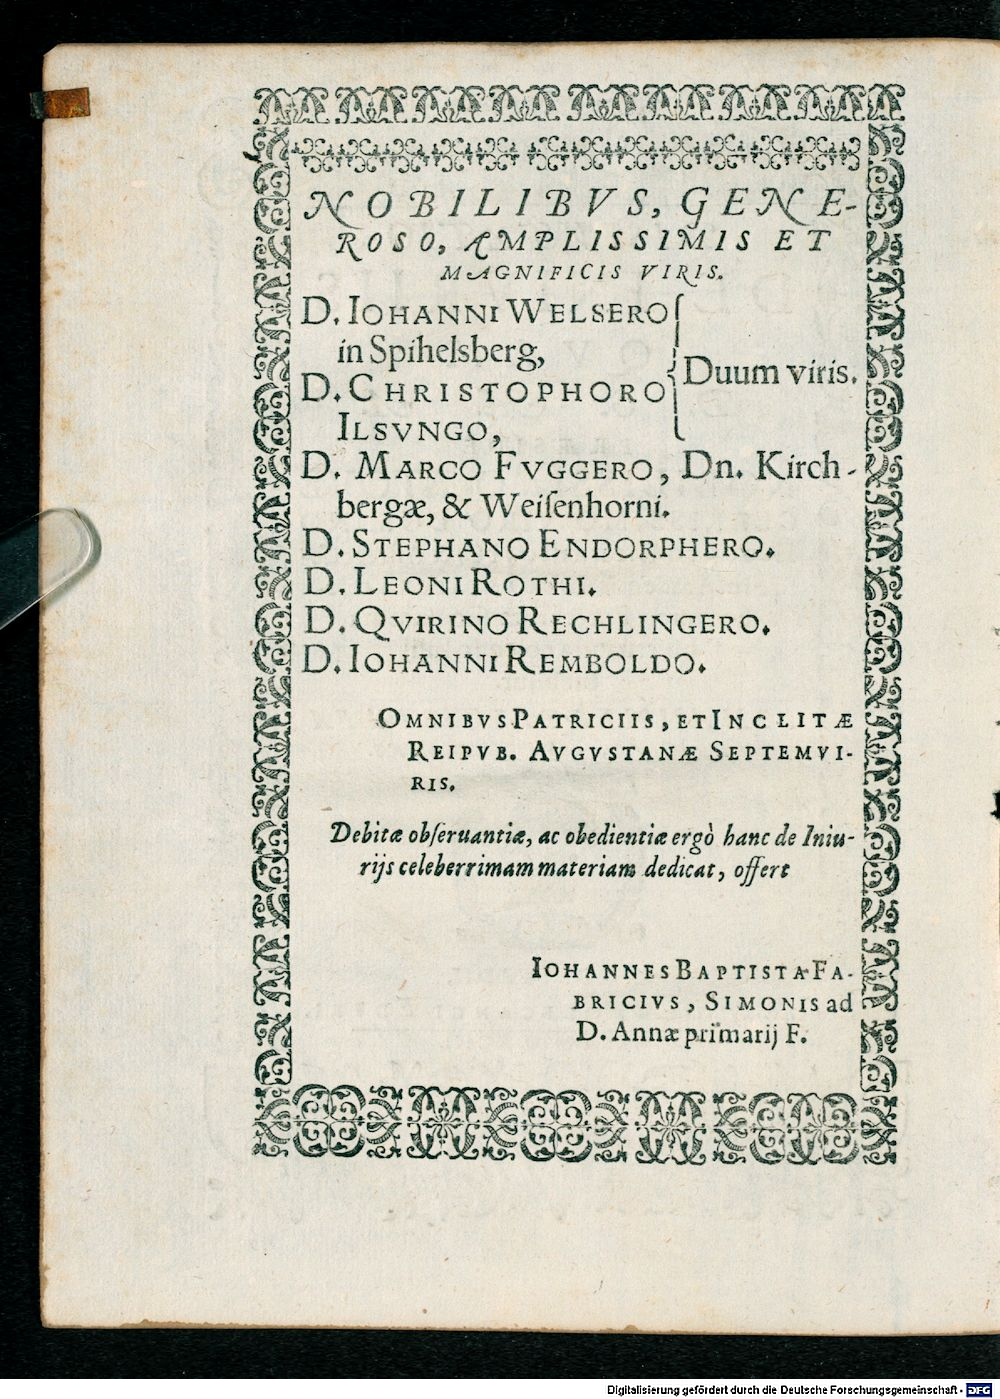 NOBILIBVS, GENE-
ROSO, AMPLISSIMIS ET
MAGNIFICIS VIRIS.
D. IOHANNI WELSERO
in Spihelsberg,
D. CHRISTOPHORO
Duum viris.
ILSVNGO,
D. MARCO FVGGERO, Dn. Kirch-
bergæ, & Weiſenhorni.
D. STEPHANO ENDORPHERO.
D. LEONI ROTHI.
D. QVIRINO RECHLINGERO.
D. IOHANNI REMBOLDO.
OMNIBVS PATRICIIS, ET INCLITÆ
REIPVB. AVGVSTANÆ SEPTEMVI-
RIS.
Debitæ obſeruantiæ, ac obedientiæ ergò hanc de Iniu-
rijs celeberrimam materiam dedicat, offert
IOHANNES BAPTISTA FA-
BRICIVS, SIMONIS ad
D. Annæ primarij F.
Digitalisierung gefördert durch die Deutsche Forschungsgemeinschaft - DFG